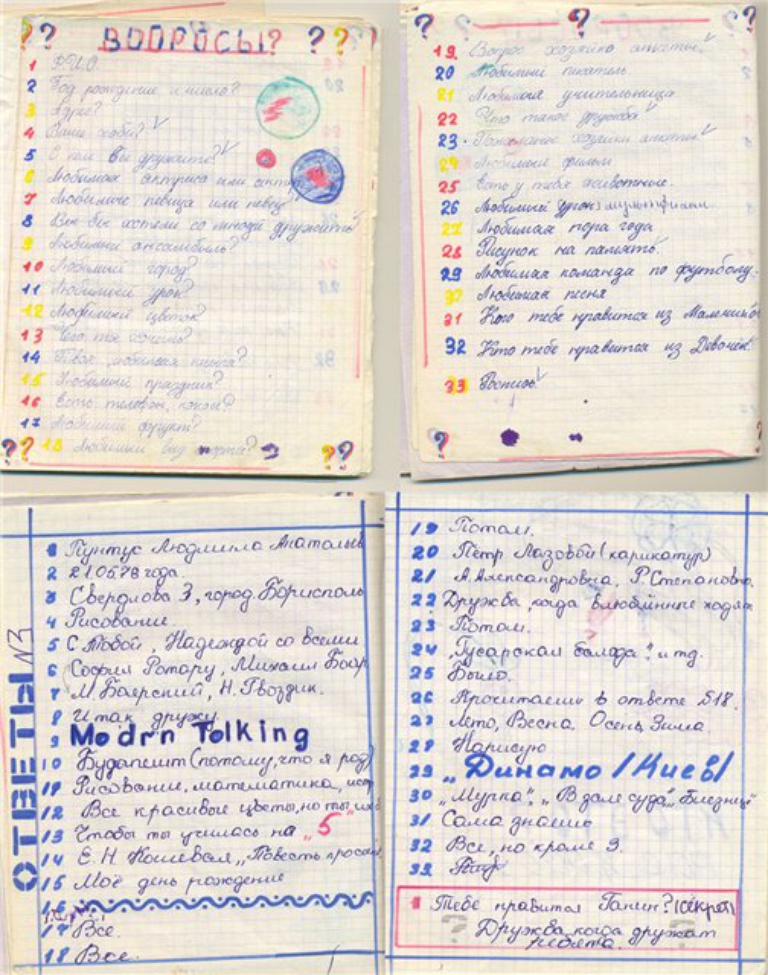 ? ? ВОПРОСЫ? ? ? ?
1 Ф.И.О.
2 Год рождение и число?
3 Адрес?
4 Ваши хобби?
5 С кем Вы дружите?
6 Любимая актриса или
7 Любимые певица или певец
8 Вы бы хотели со мной дружить
9 Любимый ансамбль?
10 Любимый город?
11 Любимый урок?
12 Любимый цветок?
13 Чего ты хочешь?
14 Твоя любимая книга?
15 Любимый праздник?
16 Есть телефон, какой?
17 Любимый фрукт?
? ? 18 Любимый вид спорта? ? ?
? ? ?
19. Вопрос хозяйке анкеты.
20 Любимый писатель
21 Любимая учительница
22 Что такое дружба
23. Пожелание хозяйки анкеты.
24 Любимый фильм
25 Есть у тебя животные.
26 Любимый (урок) мультфильм
27 Любимая пора года
28 Рисунок на память.
29 Любимая команда по футболу.
30 Любимая песня
31 Кто тебе нравится из
32 Кто тебе нравится из Девочек.
33 Роспись.
?
ОТВЕТЫ №3
1 Пунтус Людмила
2 21.05.78 года.
3 Свердлова 3, город Борисполь
4 Рисование.
5 С Тобой, Надеждой со всеми
6 София Ротару, Михаил
7 М.Боярский, Н.Гвоздик.
8 И так дружу.
9 Modrn Tolking
10 Будапешт (потому, что я
11 Рисование, математика,
12 Все красивые цветы, но ты
13 Чтобы ты училась на „5"
14 Е.Н. Кошевая „Повесть
15 Моё день рождение
16
17 Все.
18 Все.
19 Потом.
20 Пётр Лазовой (карикатур)
21 А.Александровна, Р.Степановна.
22 Дружба, когда влюблённые ходят
23 Потом.
24 „Гусарская балада" и тд.
25 Было.
26 Прочитаеш в ответе §18.
27 Лето, Весна. Осень, Зима.
28 Нарисую
29 „Динамо /Киев/
30 „Мурка", „В зале суда",
31 Сама знаешь
32 Все, но кроме 9.
33
Тебе нравится Ганин? (секрет)
Дружба, когда дружат
ребята.